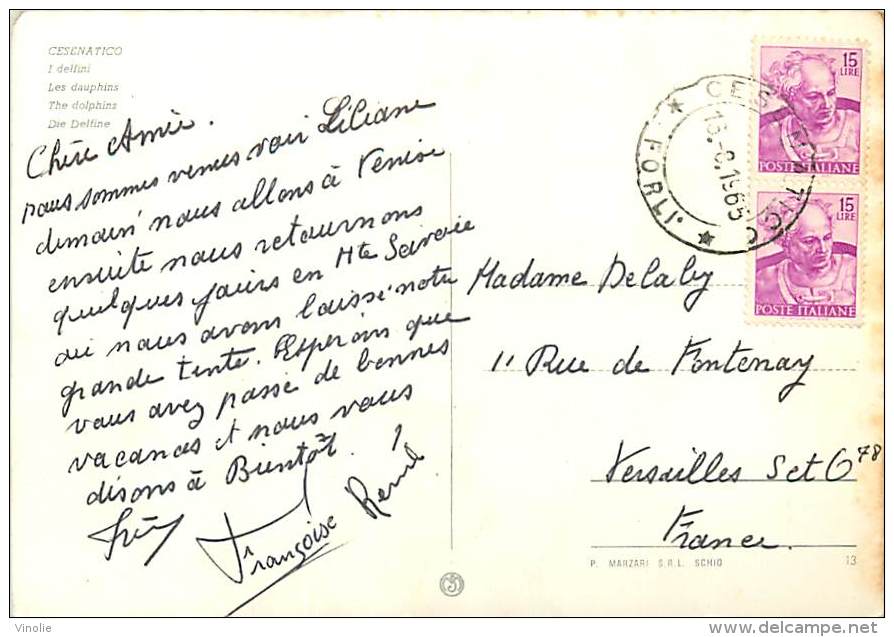 CESENATICO
I delfini
Les dauphins
The dolphins
Die Delfine
Chère Amie.
nous sommes venues voir Liliane
demain nous allons à Venise
ensuite nous retournons
quelques jours en Hte Savoie
où nous avons laissé notre
grande tente. Esperons que
vous avez passé de bonnes
vacances et nous vous
disons à Bientôt.
Françoise René
15
LIRE
POSTE ITALIANE
15
LIRE
POSTE ITALIANE
CESENATICO
FORLI.
Madame Delaby
11 Rue de Fontenay
Versailles S et O 78
France.
P. MARZARI S.R.L. SCHIO
13
Vinolie
http://www.delcampe.net